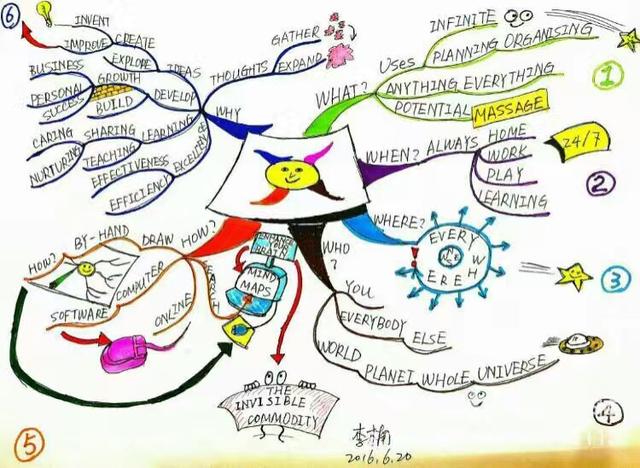 6
INVENT
IMPROVE
CREATE
EXPLORE
IDEAS
BUSINESS
GROWTH
PERSONAL
SUCCESS
BUILD
DEVELOP
CARING
NURTURING
SHARING
TEACHING
LEARNING
EFFECTIVENESS
EFFICIENCY
EXCELLENCE
WHY
THOUGHTS
GATHER
EXPAND
WHAT?
USES
INFINITE
PLANNING ORGANISING
ANYTHING EVERYTHING
POTENTIAL MASSAGE
1
WHEN? ALWAYS
HOME
WORK
PLAY
LEARNING
24/7
2
WHERE?
EVERYWHERE
3
WHO
?
YOU
EVERYBODY
ELSE
WORLD
PLANET WHOLE UNIVERSE
4
HOW?
DRAW
BY-HAND
HOW?
COMPUTER
SOFTWARE
ONLINE
SEARCH
ENHANCE
YOUR
BRAIN
MIND
MAPS
THE
INVISIBLE
COMMODITY
5
李楠
2016.6.20